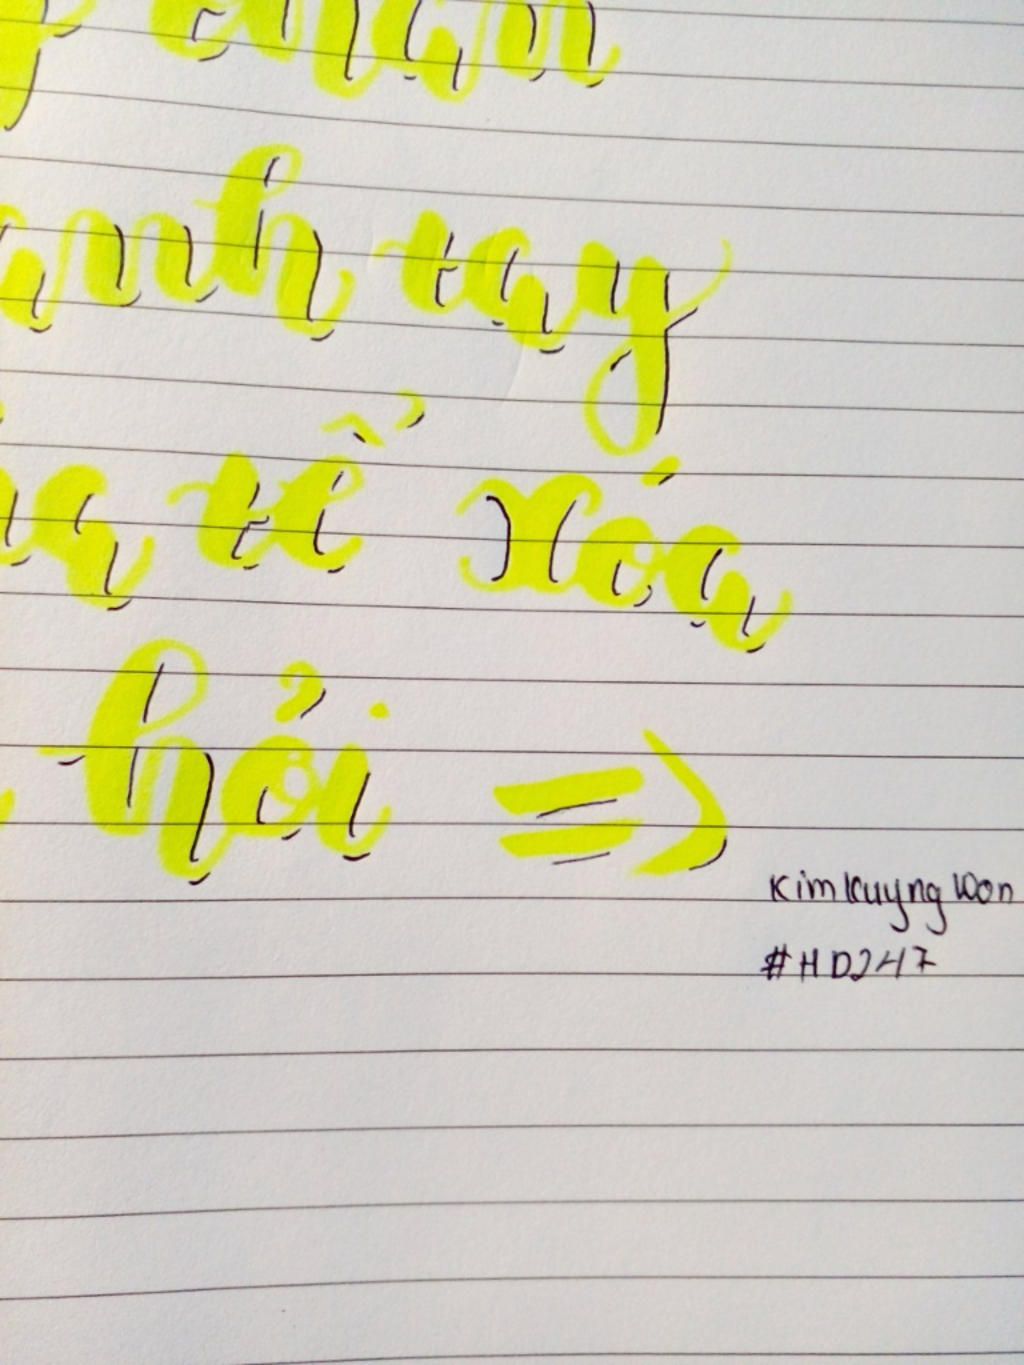 chậm
anh tay
tể xóa
hỏi =>
Kimkuyng Won
#HD247